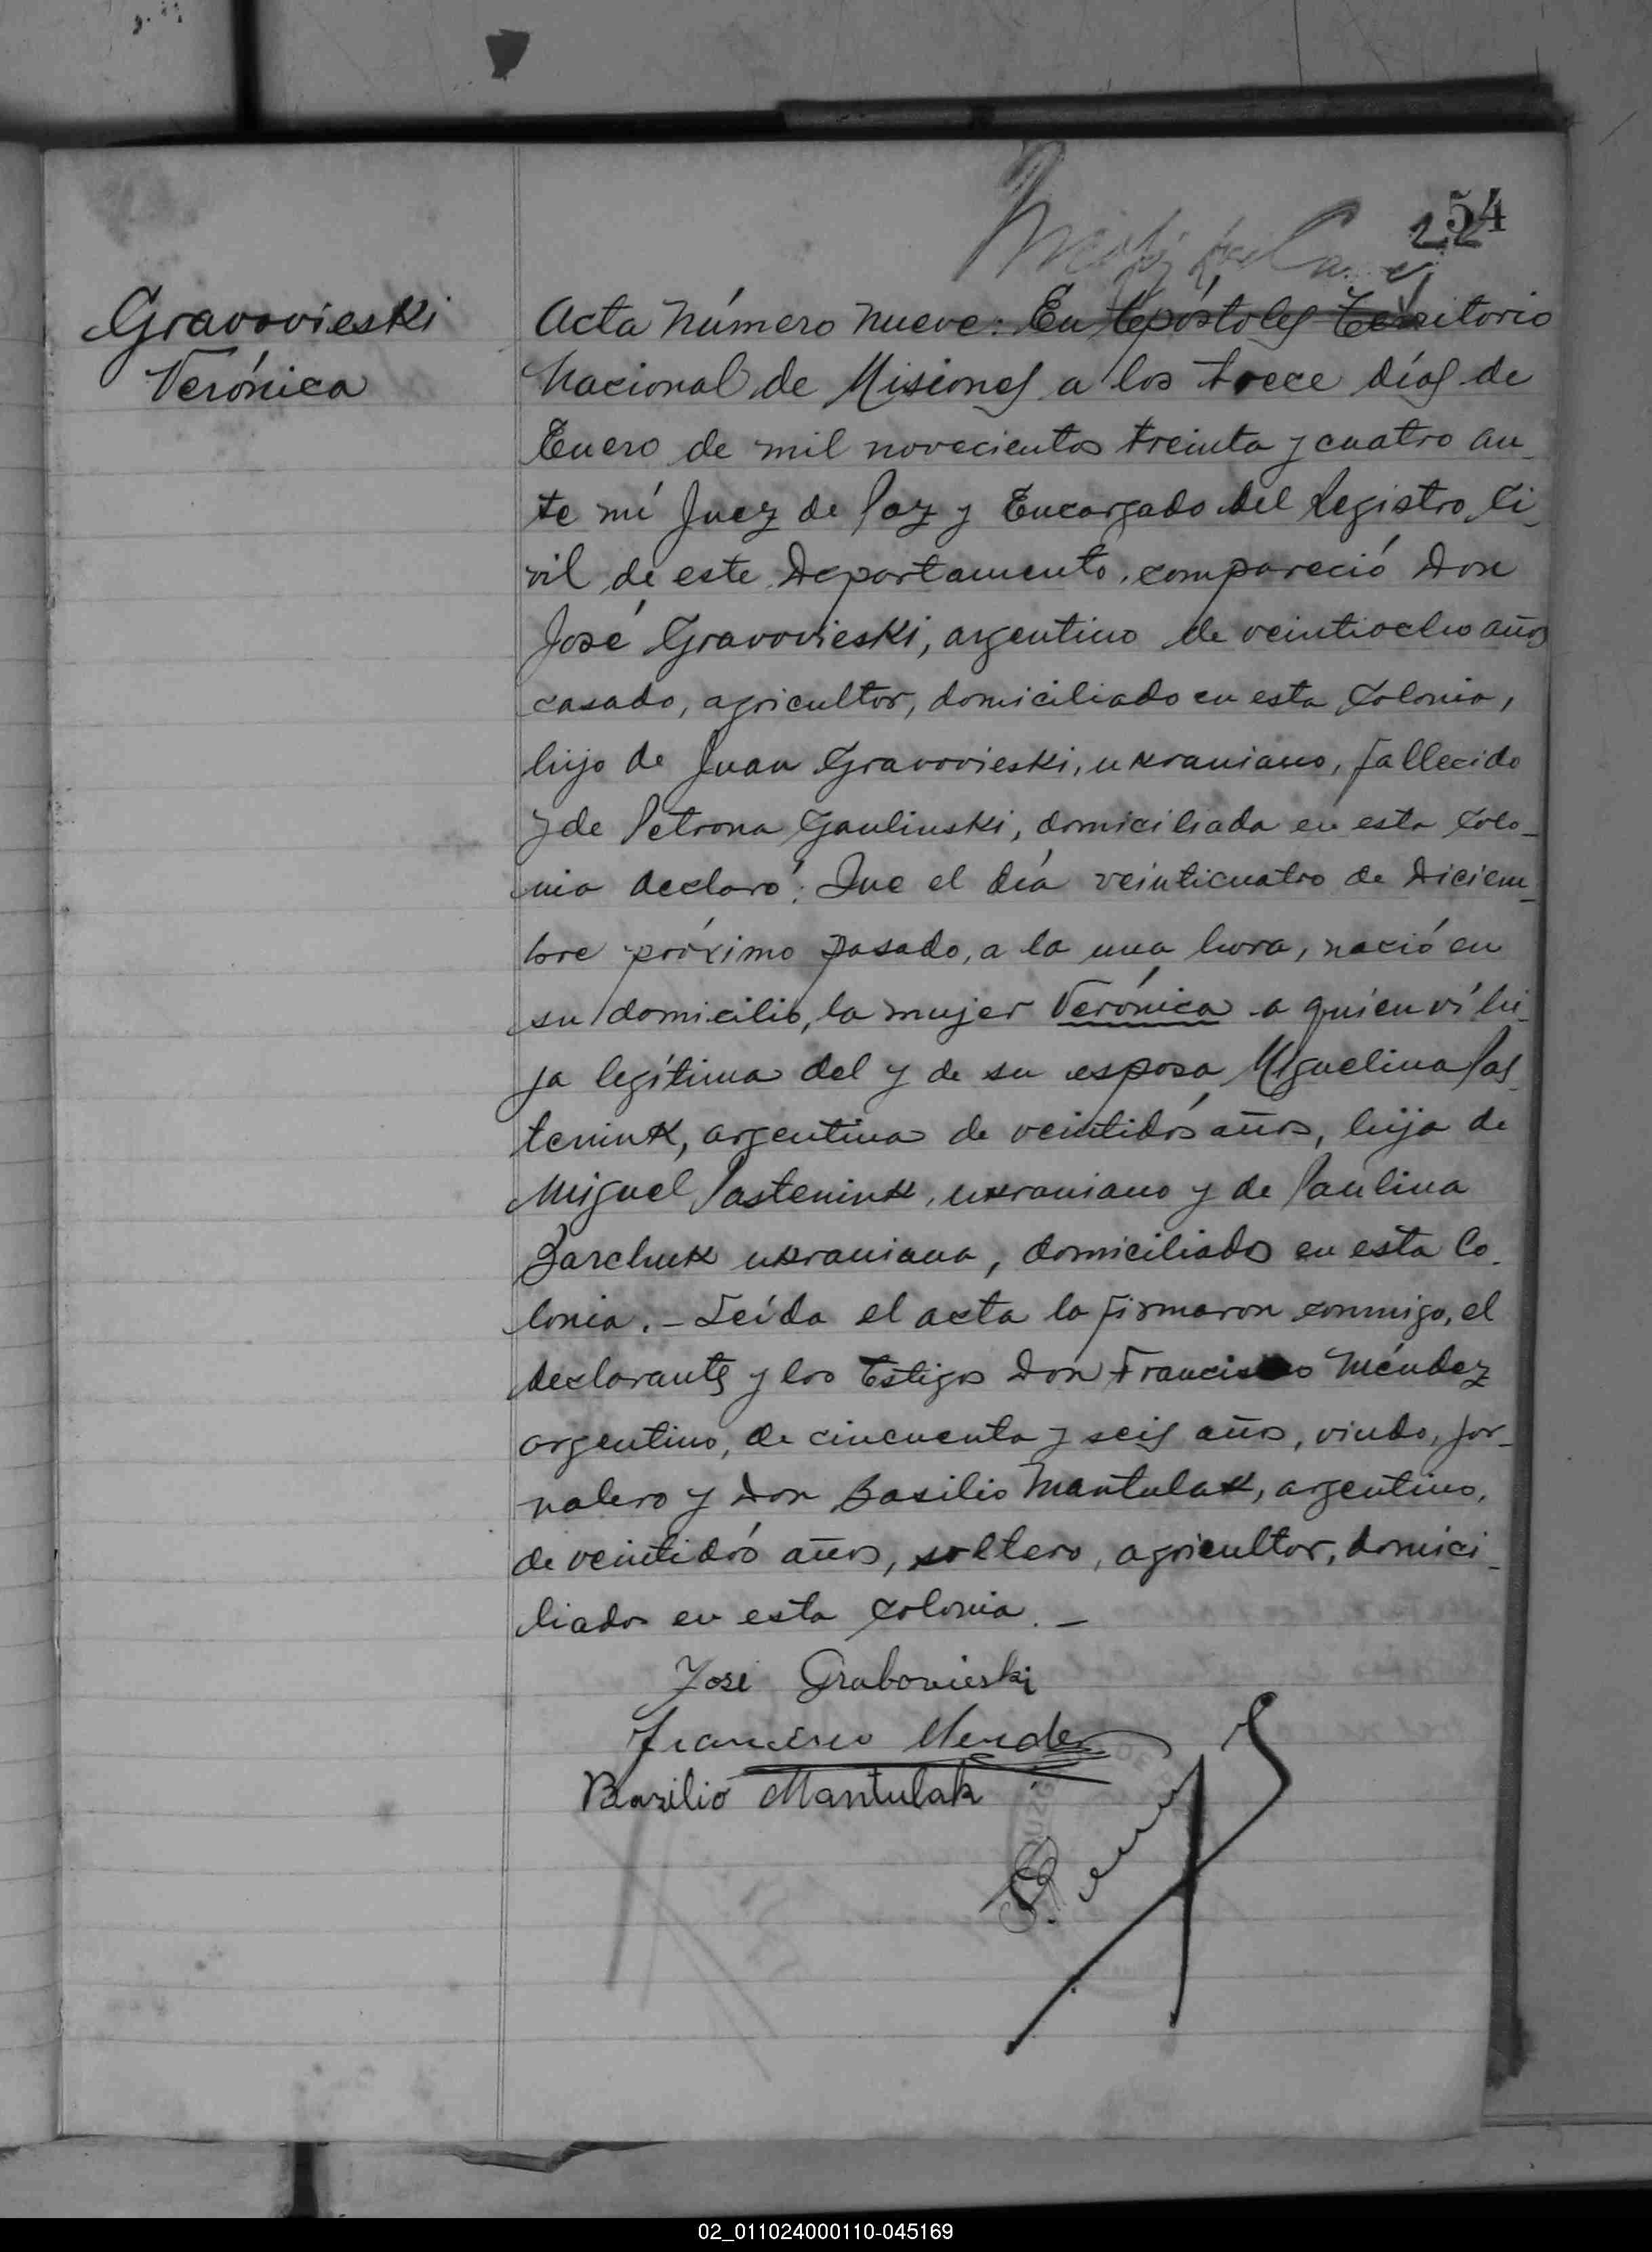 54
22
Gravovieski
Verónica
Acta Número nueve: En Apóstoles Territorio
Nacional de Misiones a los trece días de
Enero de mil novecientos treinta y cuatro an-
te mí Juez de Paz y Encargado del Registro Ci-
vil de este Departamento, compareció Don
José Gravovieski, argentino de veintiocho años
casado, agricultor, domiciliado en esta Colonia,
hijo de Juan Gravovieski, ukraniano, fallecido
y de Petrona Gaulinski, domiciliada en esta Colo-
nia declaró: Que el día veinticuatro de Diciem-
bre próximo pasado, a la una hora, nació en
su domicilio, la mujer Verónica a quien ví hi-
ja legítima del y de su esposa Miguelina Pas-
teniuk, argentina de veintidós años, hija de
Miguel Pasteniuk, ukraniano y de Paulina
Barchuk ukraniana, domiciliados en esta Co-
lonia. - Leída el acta la firmaron conmigo, el
declarante y los Testigos Don Francisco Méndez
argentino, de cincuenta y seis años, viudo, jor-
nalero y Don Basilio Mantulak, argentino,
de veintidós años, soltero, agricultor, domici-
liados en esta Colonia. -
José Grabovieski
Francisco Mendez
Bazilio Mantulak
02_011024000110-045169